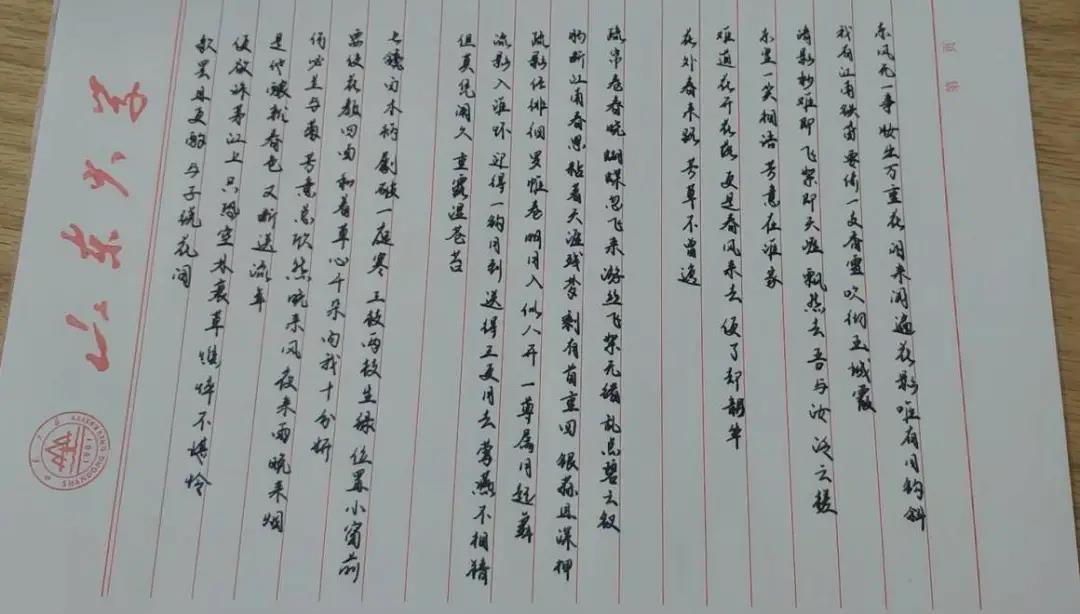 第 页
东风无一事妆出万重花闲来阅遍花影唯有月钩斜
我有江南铁笛要倚一支香雪吹彻玉城霞
清影渺难即飞絮即天涯飘然去吾与汝泛云槎
东皇一笑相语芳意在谁家
难道花开花落更是春风来去便了却韶华
花外春来路芳草不曾遮
疏帘卷春晓蝴蝶忽飞来游丝飞絮无绪乱点碧云钗
肠断江南春思粘着天涯残梦剩有首重回银蒜且深押
疏影任徘徊罗帷卷明月入似人开一尊属月起舞
流影入谁怀迎得一钩月到送得三更月去莺燕不相猜
但莫凭阑久重露湿苍苔
长镵白木柄劚破一庭寒三枝两枝生绿位置小窗前
要使花颜四面和着草心千朵向我十分妍
何必兰与菊芳意总欣然晓来风夜来雨晚来烟
是他酿就春色又断送流年
便欲诛茅江上只恐空林衰草憔悴不堪怜
歌罢且更酌与子绕花间
山东大学